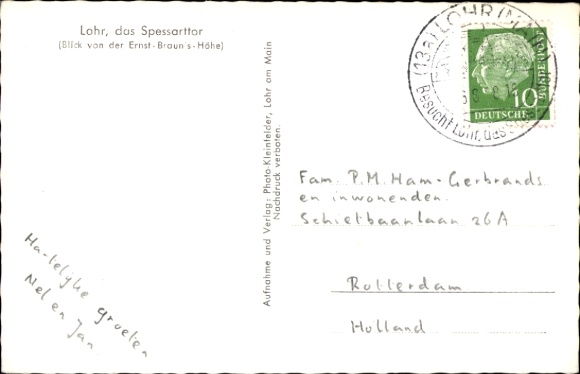 Lohr, das Spessarttor
(Blick von der Ernst-Braun's-Höhe)
Aufnahme und Verlag: Photo-Kleinfelder, Lohr am Main
Nachdruck verboten.
(13a) LOHR (MAIN)
Besucht Lohr, das
10
DEUTSCHE
BUNDESPOST
Fam. P.M. Ham-Gerbrands
en inwonenden.
Schietbaanlaan 26A
Rotterdam
Holland
Hartelijke groeten
Nel en Jan